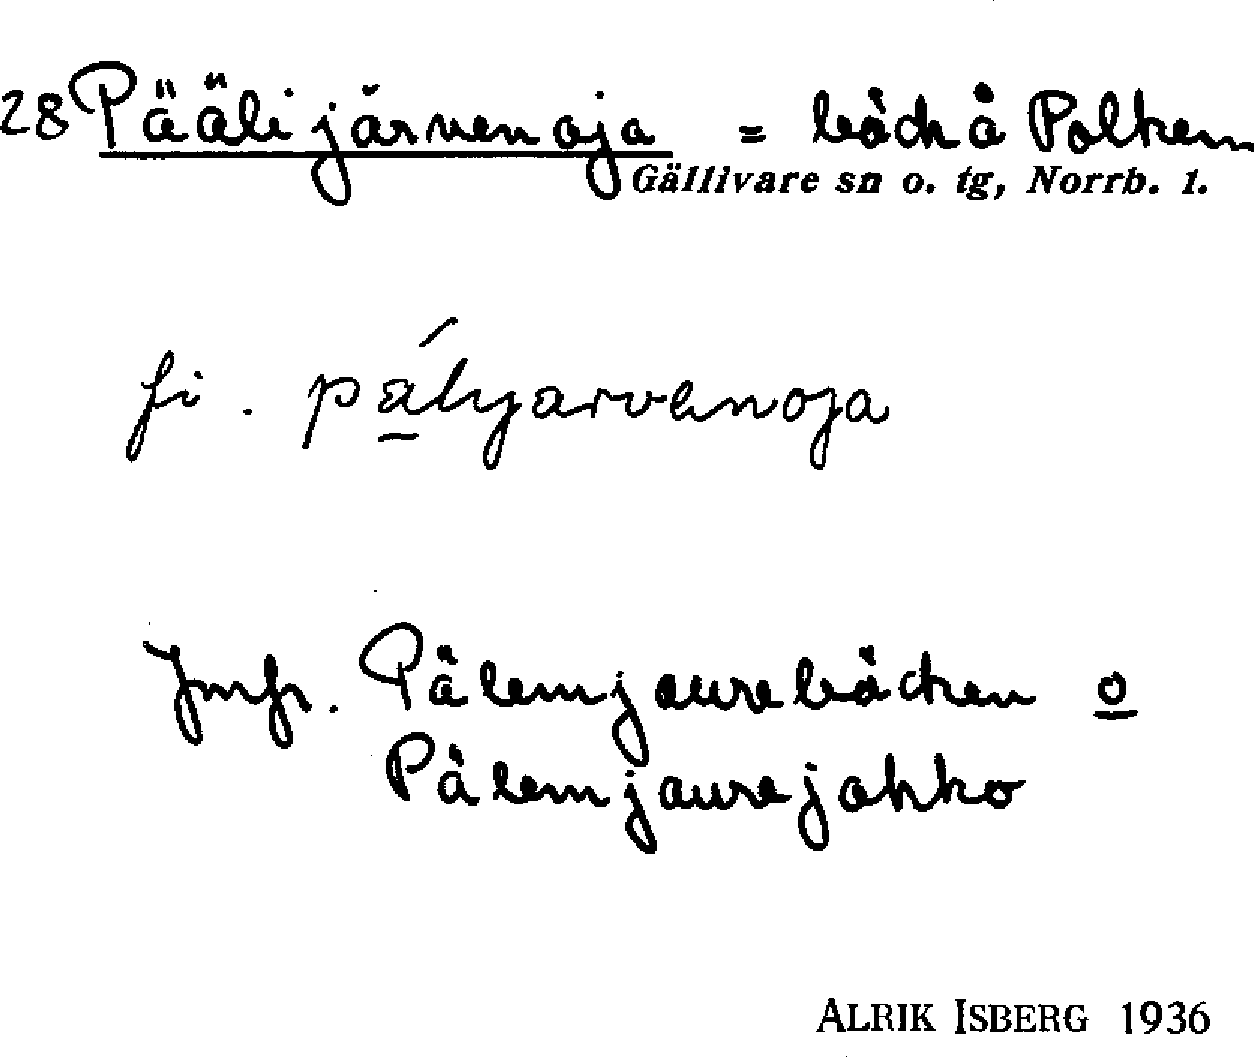 28 Päälijärvenoja = bäck å Polken
Gällivare sn o. tg, Norrb. l.
fi. pályarvenoja
Jmfr. Pälemjaurebäcken o
Pälemjaurejokko
ALRIK ISBERG 1936